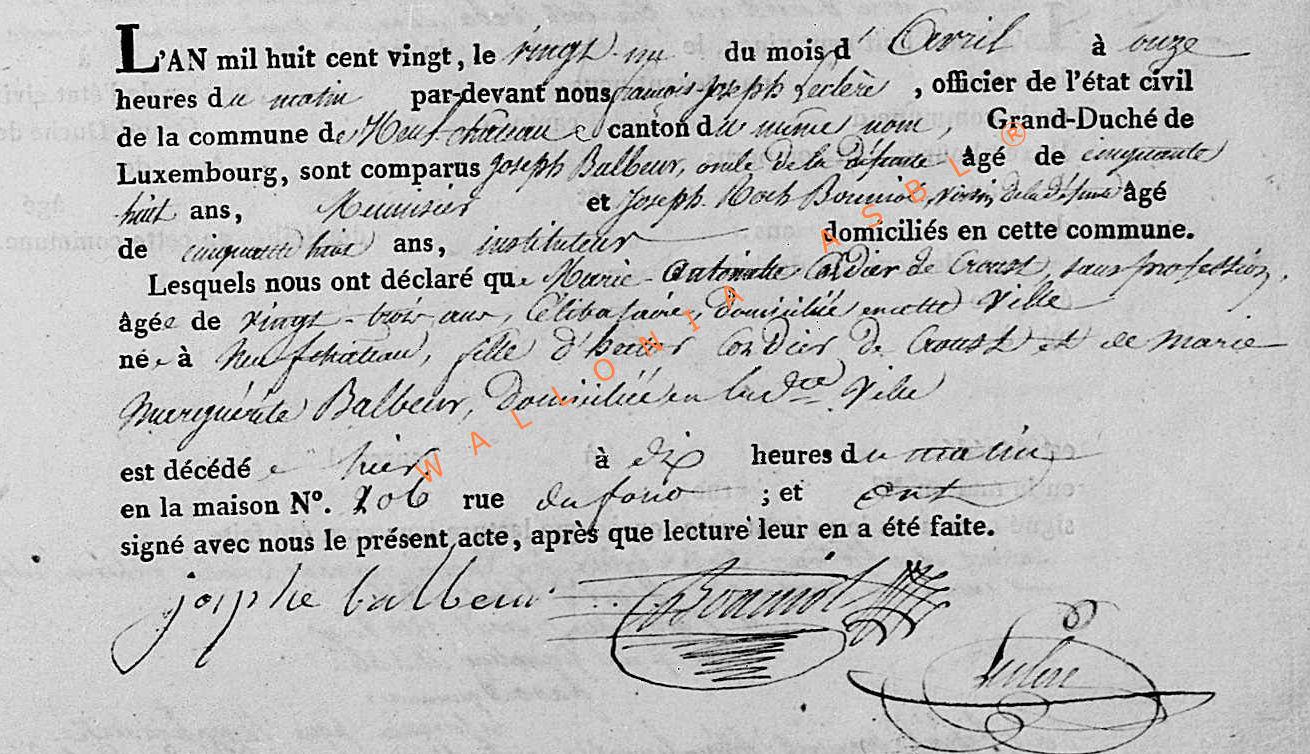 L'AN mil huit cent vingt, le vingt-un du mois d'Avril à onze
heures du matin par-devant nous françois Joseph Leclère, officier de l'état civil
de la commune de Neufchateau canton du même nom, Grand-Duché de
Luxembourg, sont comparus Joseph Balbeur, oncle de la défunte âgé de cinquante
huit ans, Menuisier et Joseph Roch Bonniot, voisin de la défunte âgé
de cinquante huit ans, instituteur domiciliés en cette commune.
Lesquels nous ont déclaré que Marie-Antoinette Cordier de Croust, sans profession,
âgée de vingt-trois ans, Célibataire, domiciliée en cette Ville
née à Neufchateau, fille d'hector Cordier de Croust et de Marie
Marguérite Balbeur, Domiciliée en la dce Ville
est décédée hier à dix heures du matin
en la maison N°. 206 rue du ; et ont
signé avec nous le présent acte, après que lecture leur en a été faite.
josephe balbeur Bonniot
Leclere
WALLONIA ASBL ®